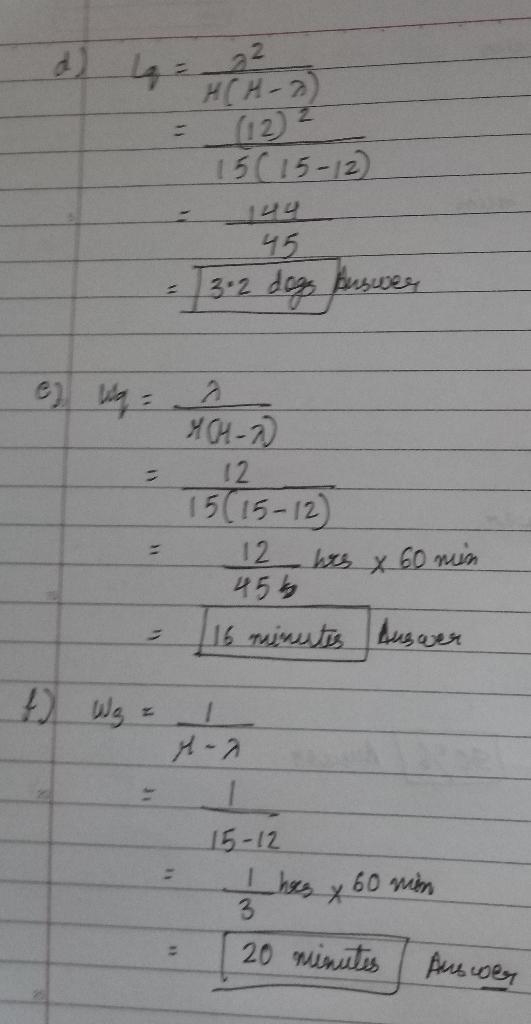 d) Lq = λ²
μ(μ-λ)
= (12)²
15(15-12)
= 144
45
= 3.2 dogs Answer
e) Wq = λ
μ(μ-λ)
= 12
15(15-12)
= 12 hrs × 60 min
45
= 16 minutes Answer
f) Ws = 1
μ-λ
= 1
15-12
= 1 hrs × 60 min
3
= 20 minutes Answer